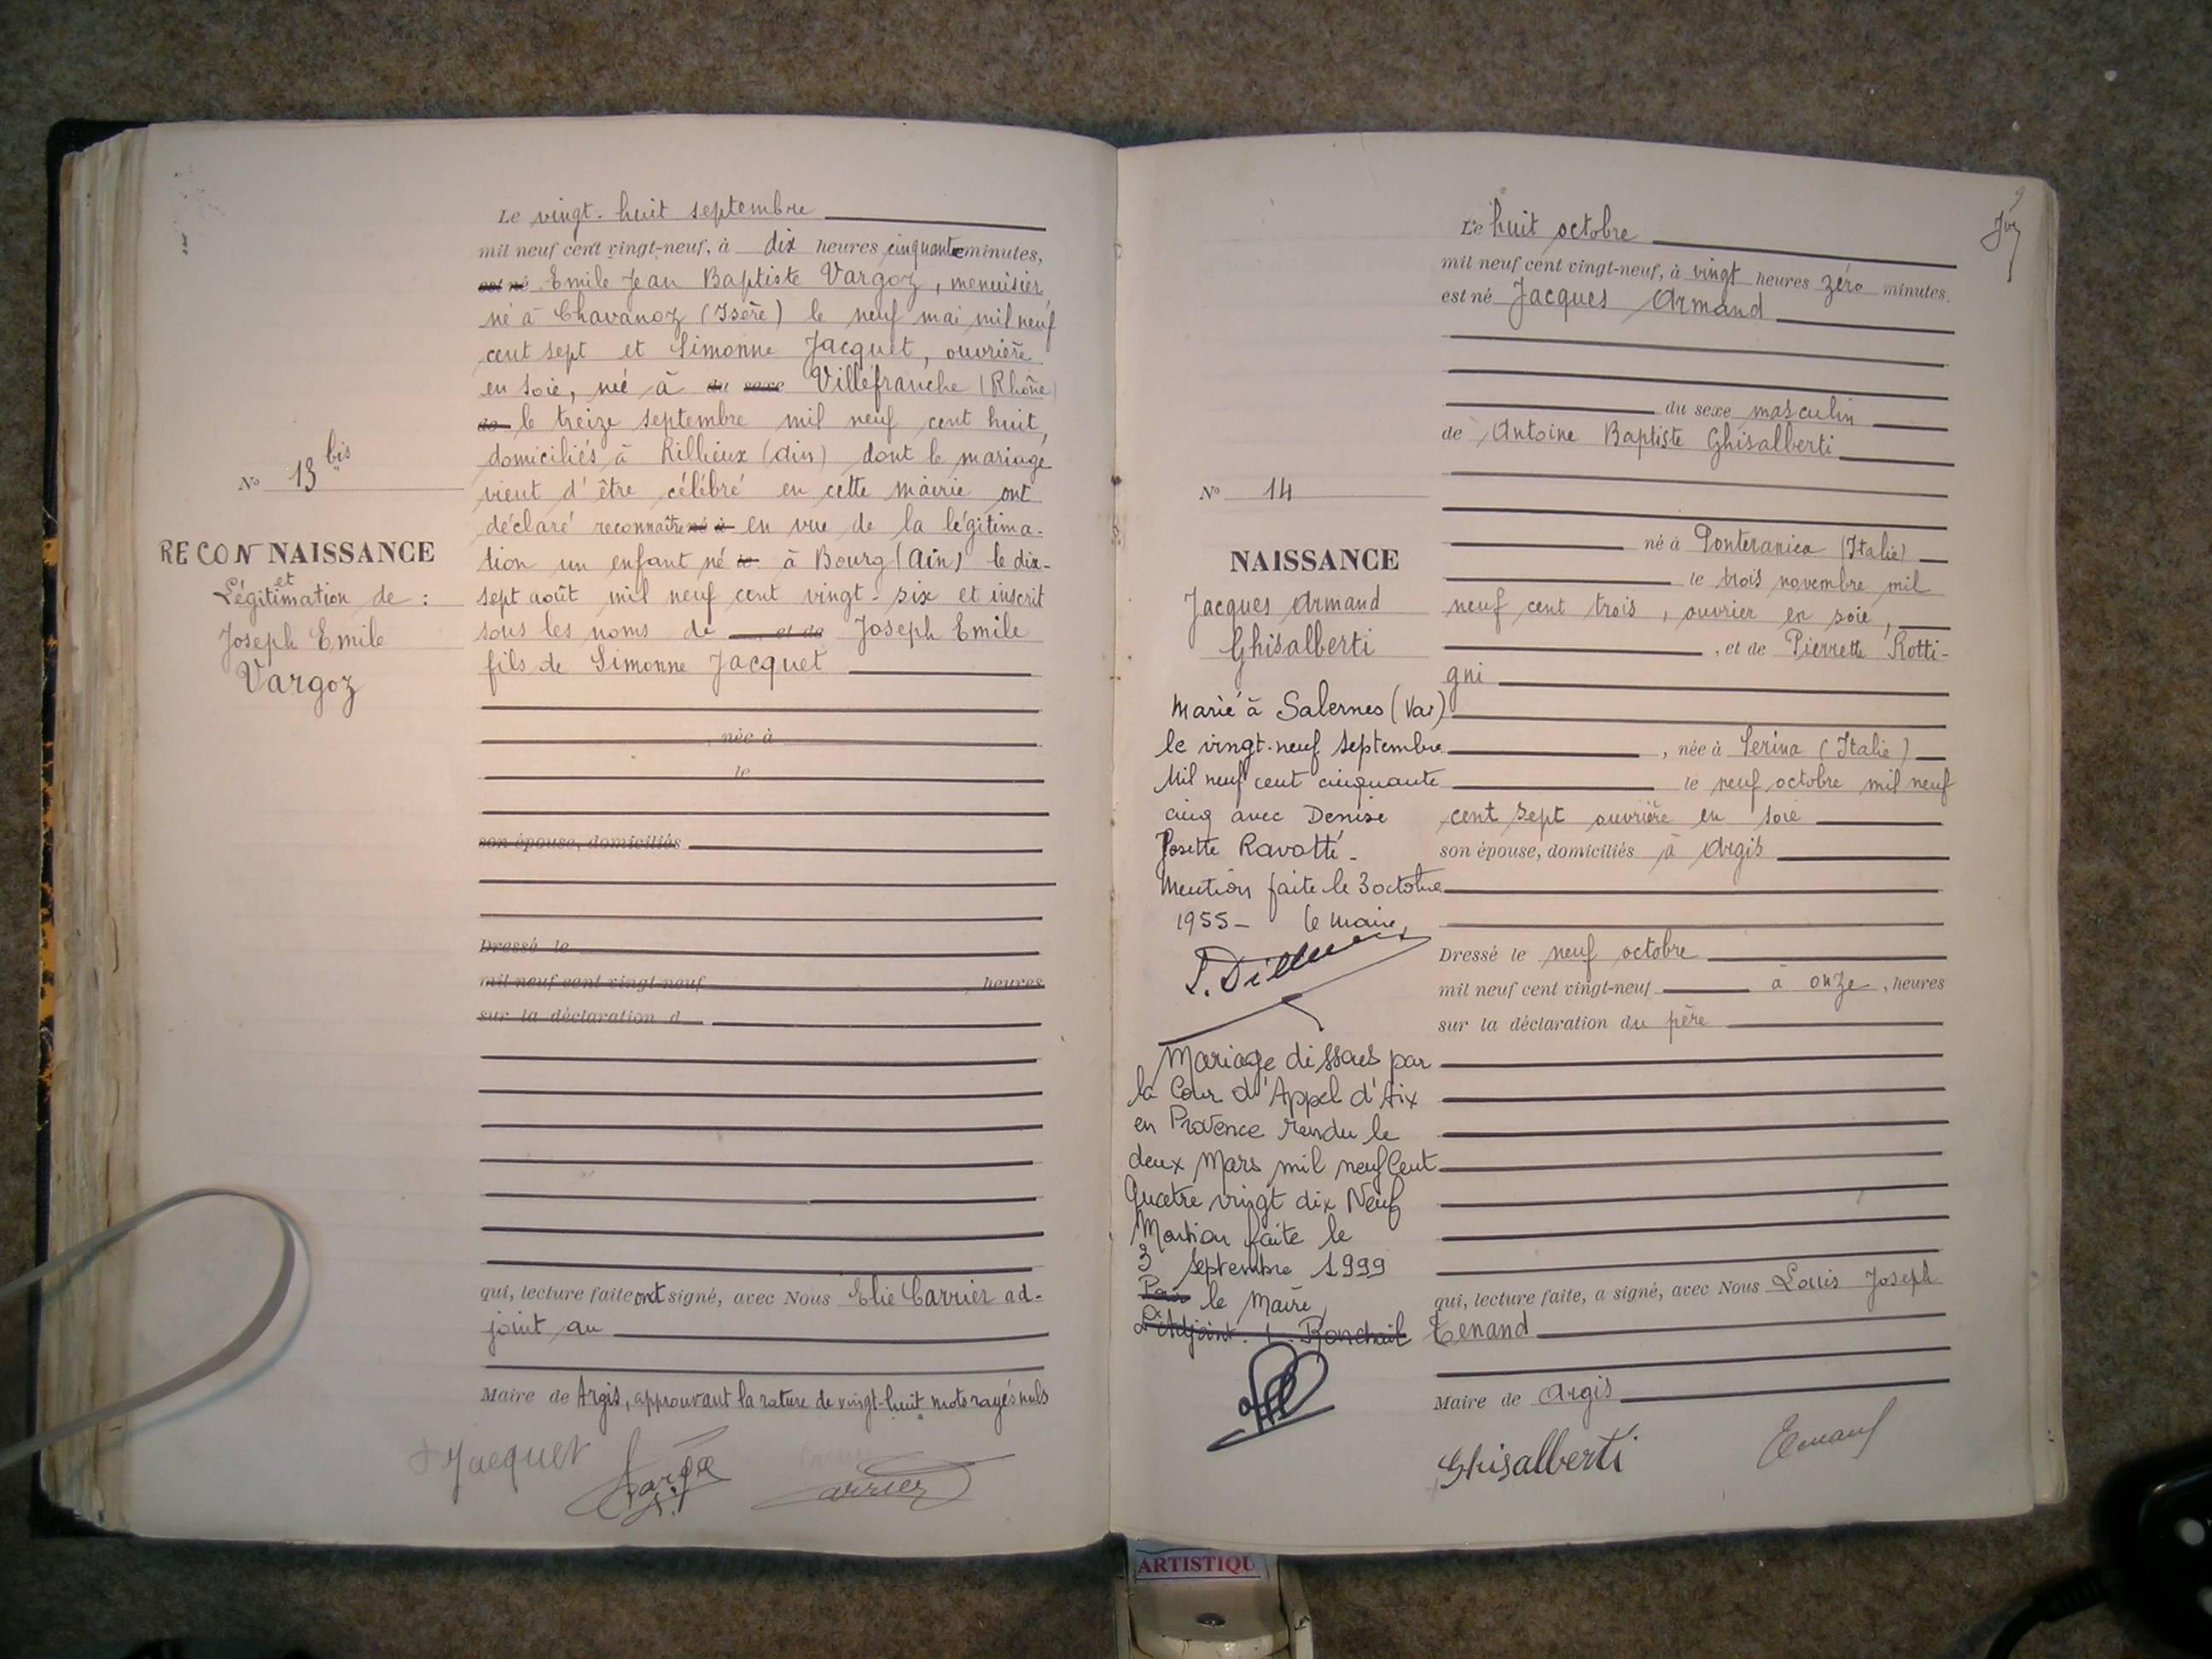 Le vingt-huit septembre
mil neuf cent vingt-neuf, à dix heures cinquante minutes,
est né Emile Jean Baptiste Vargoz, menuisier
né à Chavanoz (Isère) le neuf mai mil neuf
cent sept et Simonne Jacquet, ouvrière
en soie, née à du sexe Villefranche (Rhône)
de le treize septembre mil neuf cent huit,
domiciliés à Rillieux (Ain) dont le mariage
vient d'être célébré en cette mairie ont
déclaré reconnaître né à en vue de la légitima-
tion un enfant né le à Bourg (Ain) le dix-
sept août mil neuf cent vingt-six et inscrit
sous les noms de , et de Joseph Emile
fils de Simonne Jacquet
, née à
le
son épouse, domiciliés
Dressé le
mil neuf cent vingt-neuf , heures
sur la déclaration d
qui, lecture faite ont signé, avec Nous Elie Carrier ad-
joint au
Maire de Argis, approuvant la rature de vingt-huit mots rayés nuls
Jacquet
Carrier
No 13 bis
RECONNAISSANCE
et
Légitimation de :
Joseph Emile
Vargoz
9
Le huit octobre
mil neuf cent vingt-neuf, à vingt heures zéro minutes.
est né Jacques Armand
du sexe masculin
de Antoine Baptiste Ghisalberti
né à Ponteranica (Italie)
le trois novembre mil
neuf cent trois, ouvrier en soie,
, et de Pierrette Rotti-
gni
, née à Serina (Italie)
le neuf octobre mil neuf
cent sept ouvrière en soie
son épouse, domiciliés à Argis
Dressé le neuf octobre
mil neuf cent vingt-neuf à onze , heures
sur la déclaration du père
qui, lecture faite, a signé, avec Nous Louis Joseph
Tenand
Maire de Argis
Ghisalberti Tenand
No 14
NAISSANCE
Jacques Armand
Ghisalberti
Marié à Salernes (Var)
le vingt-neuf septembre
Mil neuf cent cinquante
cinq avec Denise
Josette Ravotté.
Mention faite le 3 octobre
1955 - le Maire,
Mariage dissous par
la Cour d'Appel d'Aix
en Provence rendu le
deux Mars mil neuf Cent
Quatre vingt dix Neuf
Mention faite le
3 septembre 1999
Pour le Maire,
L'Adjoint.
ARTISTIQU